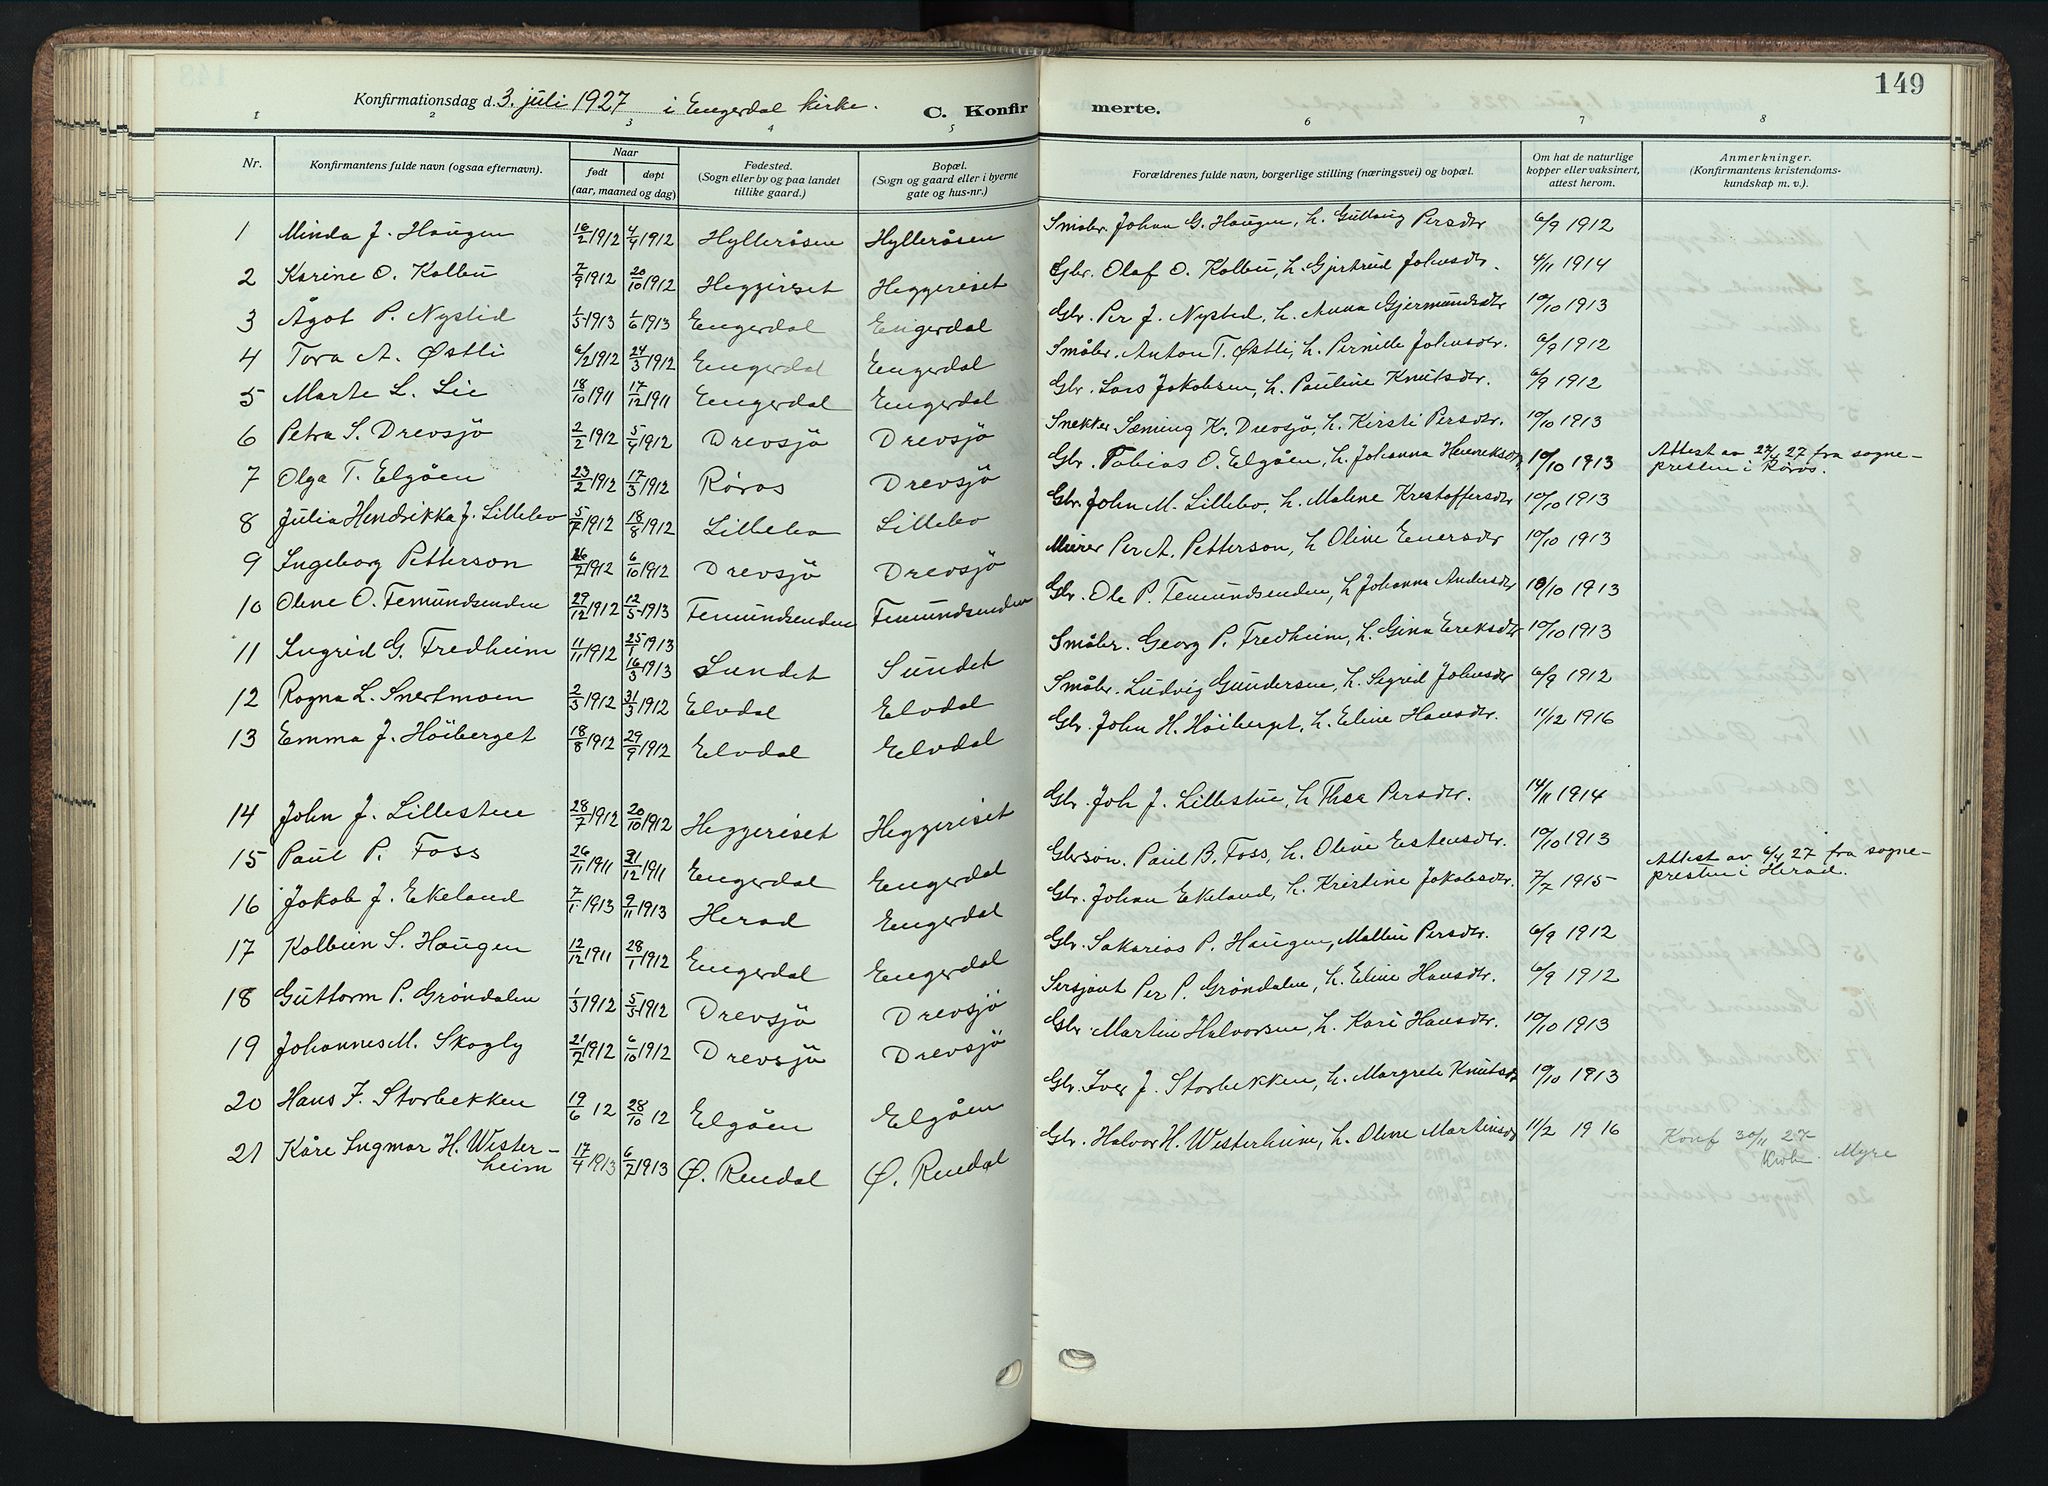 149
Konfirmationsdag d. 3. juli 1927 i Engerdal kirke. C. Konfirmerte.
1 2 3 4 5 6 7 8
Nr. Konfirmantens fulde navn (ogsaa efternavn). Naar født døpt (aar, maaned og dag) Fødested. (Sogn eller by og paa landet tillike gaard.) Bopæl. (Sogn og gaard eller i byerne gate og hus-nr.) Forældrenes fulde navn, borgerlige stilling (næringsvei) og bopæl. Om hat de naturlige kopper eller vaksinert, attest herom. Anmerkninger. (Konfirmantens kristendomskundskap m. v.).
1 Minda J. Haugen 16/2 1912 4/4 1912 Hylleråsen Hylleråsen Småbr. Johan G. Haugen, h. Guttaug Persdtr 6/9 1912
2 Karine O. Kolbu 7/9 1912 20/10 1912 Heggeriset Heggeriset Gbr. Olaf O. Kolbu, h. Gjertrud Johnsdtr. 4/11 1914
3 Ågot P. Nysted 1/5 1913 1/6 1913 Engerdal Engerdal Gbr. Per J. Nysted, h. Anna Gjermundsdtr 10/10 1913
4 Tora A. Østli 6/2 1912 24/3 1912 Engerdal Engerdal Småbr. Anton T. Østli, h. Pernille Johnsdtr. 6/9 1912
5 Marte L. Lie 18/10 1911 17/12 1911 Engerdal Engerdal Gbr. Lars Jakobsen, h. Pauline Knutsdtr. 6/9 1912
6 Petra S. Drevsjö 2/2 1912 5/4 1912 Drevsjö Drevsjö Snekker Sæming K. Drevsjö, h. Kirsti Persdtr. 10/10 1913
7 Olga T. Elgåen 23/2 1912 17/3 1912 Røros Drevsjö Gbr. Tobias O. Elgåen, h. Johanna Henriksdtr 10/10 1913 Attest av 27/4 27 fra sogne-
presten i Røros.
8 Julia Hendrikka J. Lillebo 5/7 1912 18/8 1912 Lillebo Lillebo Gbr. John M. Lillebo, h. Malene Kristoffersdtr 10/10 1913
9 Ingeborg Petterson 26/7 1912 6/10 1912 Drevsjö Drevsjö Murer Per A. Petterson, h Oline Enersdtr 10/10 1913
10 Oline O. Femundsenden 29/12 1912 12/5 1913 Femundsenden Femundsenden Gbr. Ole P. Femundsenden, h Johanna Andersdtr 10/10 1913
11 Ingrid G. Fredheim 11/11 1912 25/1 1913 16/3 1913 Sundet Sundet Småbr. Georg P. Fredheim, h. Gina Eriksdtr 10/10 1913
12 Ragna L. Snertmoen 2/3 1912 31/3 1912 Elvdal Elvdal Småbr. Ludvig Gundersen, h. Sigrid Johnsdtr 6/9 1912
13 Emma J. Höiberget 18/8 1912 29/9 1912 Elvdal Elvdal Gbr. John H. Höiberget, h. Eline Hansdtr. 11/12 1916
14 John J. Lillestuen 28/7 1912 20/10 1912 Heggeriset Heggeriset Gbr. Joh J. Lillestue, h Thea Persdtr. 14/11 1914
15 Paul P. Foss 26/11 1911 31/12 1911 Engerdal Engerdal Gbrsøn. Paul B. Foss, h. Oline Estensdtr. 10/10 1913
16 Jakob J. Ekeland 7/1 1913 9/11 1913 Herad Engerdal Gbr. Johan Ekeland, h. Kristine Jakobsdtr. 7/7 1915 Attest av 6/4 27 fra sogne-
presten i Herad.
17 Kolbein S. Haugen 12/12 1911 28/1 1912 Engerdal Engerdal Gbr. Sakarias P. Haugen, Malline Persdtr. 6/9 1912
18 Guttorm P. Grøndalen 1/3 1912 5/5 1912 Drevsjö Drevsjö Sersjant Per P. Grøndalen, h. Eline Hansdtr. 6/9 1912
19 Johannes M. Skogly 21/7 1912 6/10 1912 Drevsjö Drevsjö Gbr. Martin Halvorsen, h. Kari Hansdtr. 10/10 1913
20 Hans I. Storbekken 19/6 12 28/10 12 Elgåen Elgåen Gbr. Iver J. Storbekken, h. Margrete Knutsdtr 10/10 1913
21 Kåre Ingmar H. Wester-
heim 17/4 1913 6/7 1913 Ø. Rendal Ø. Rendal Gbr. Halvor H. Westerheim, h. Oline Martinsdtr 11/2 1916 Konf 30/11 27
Myre